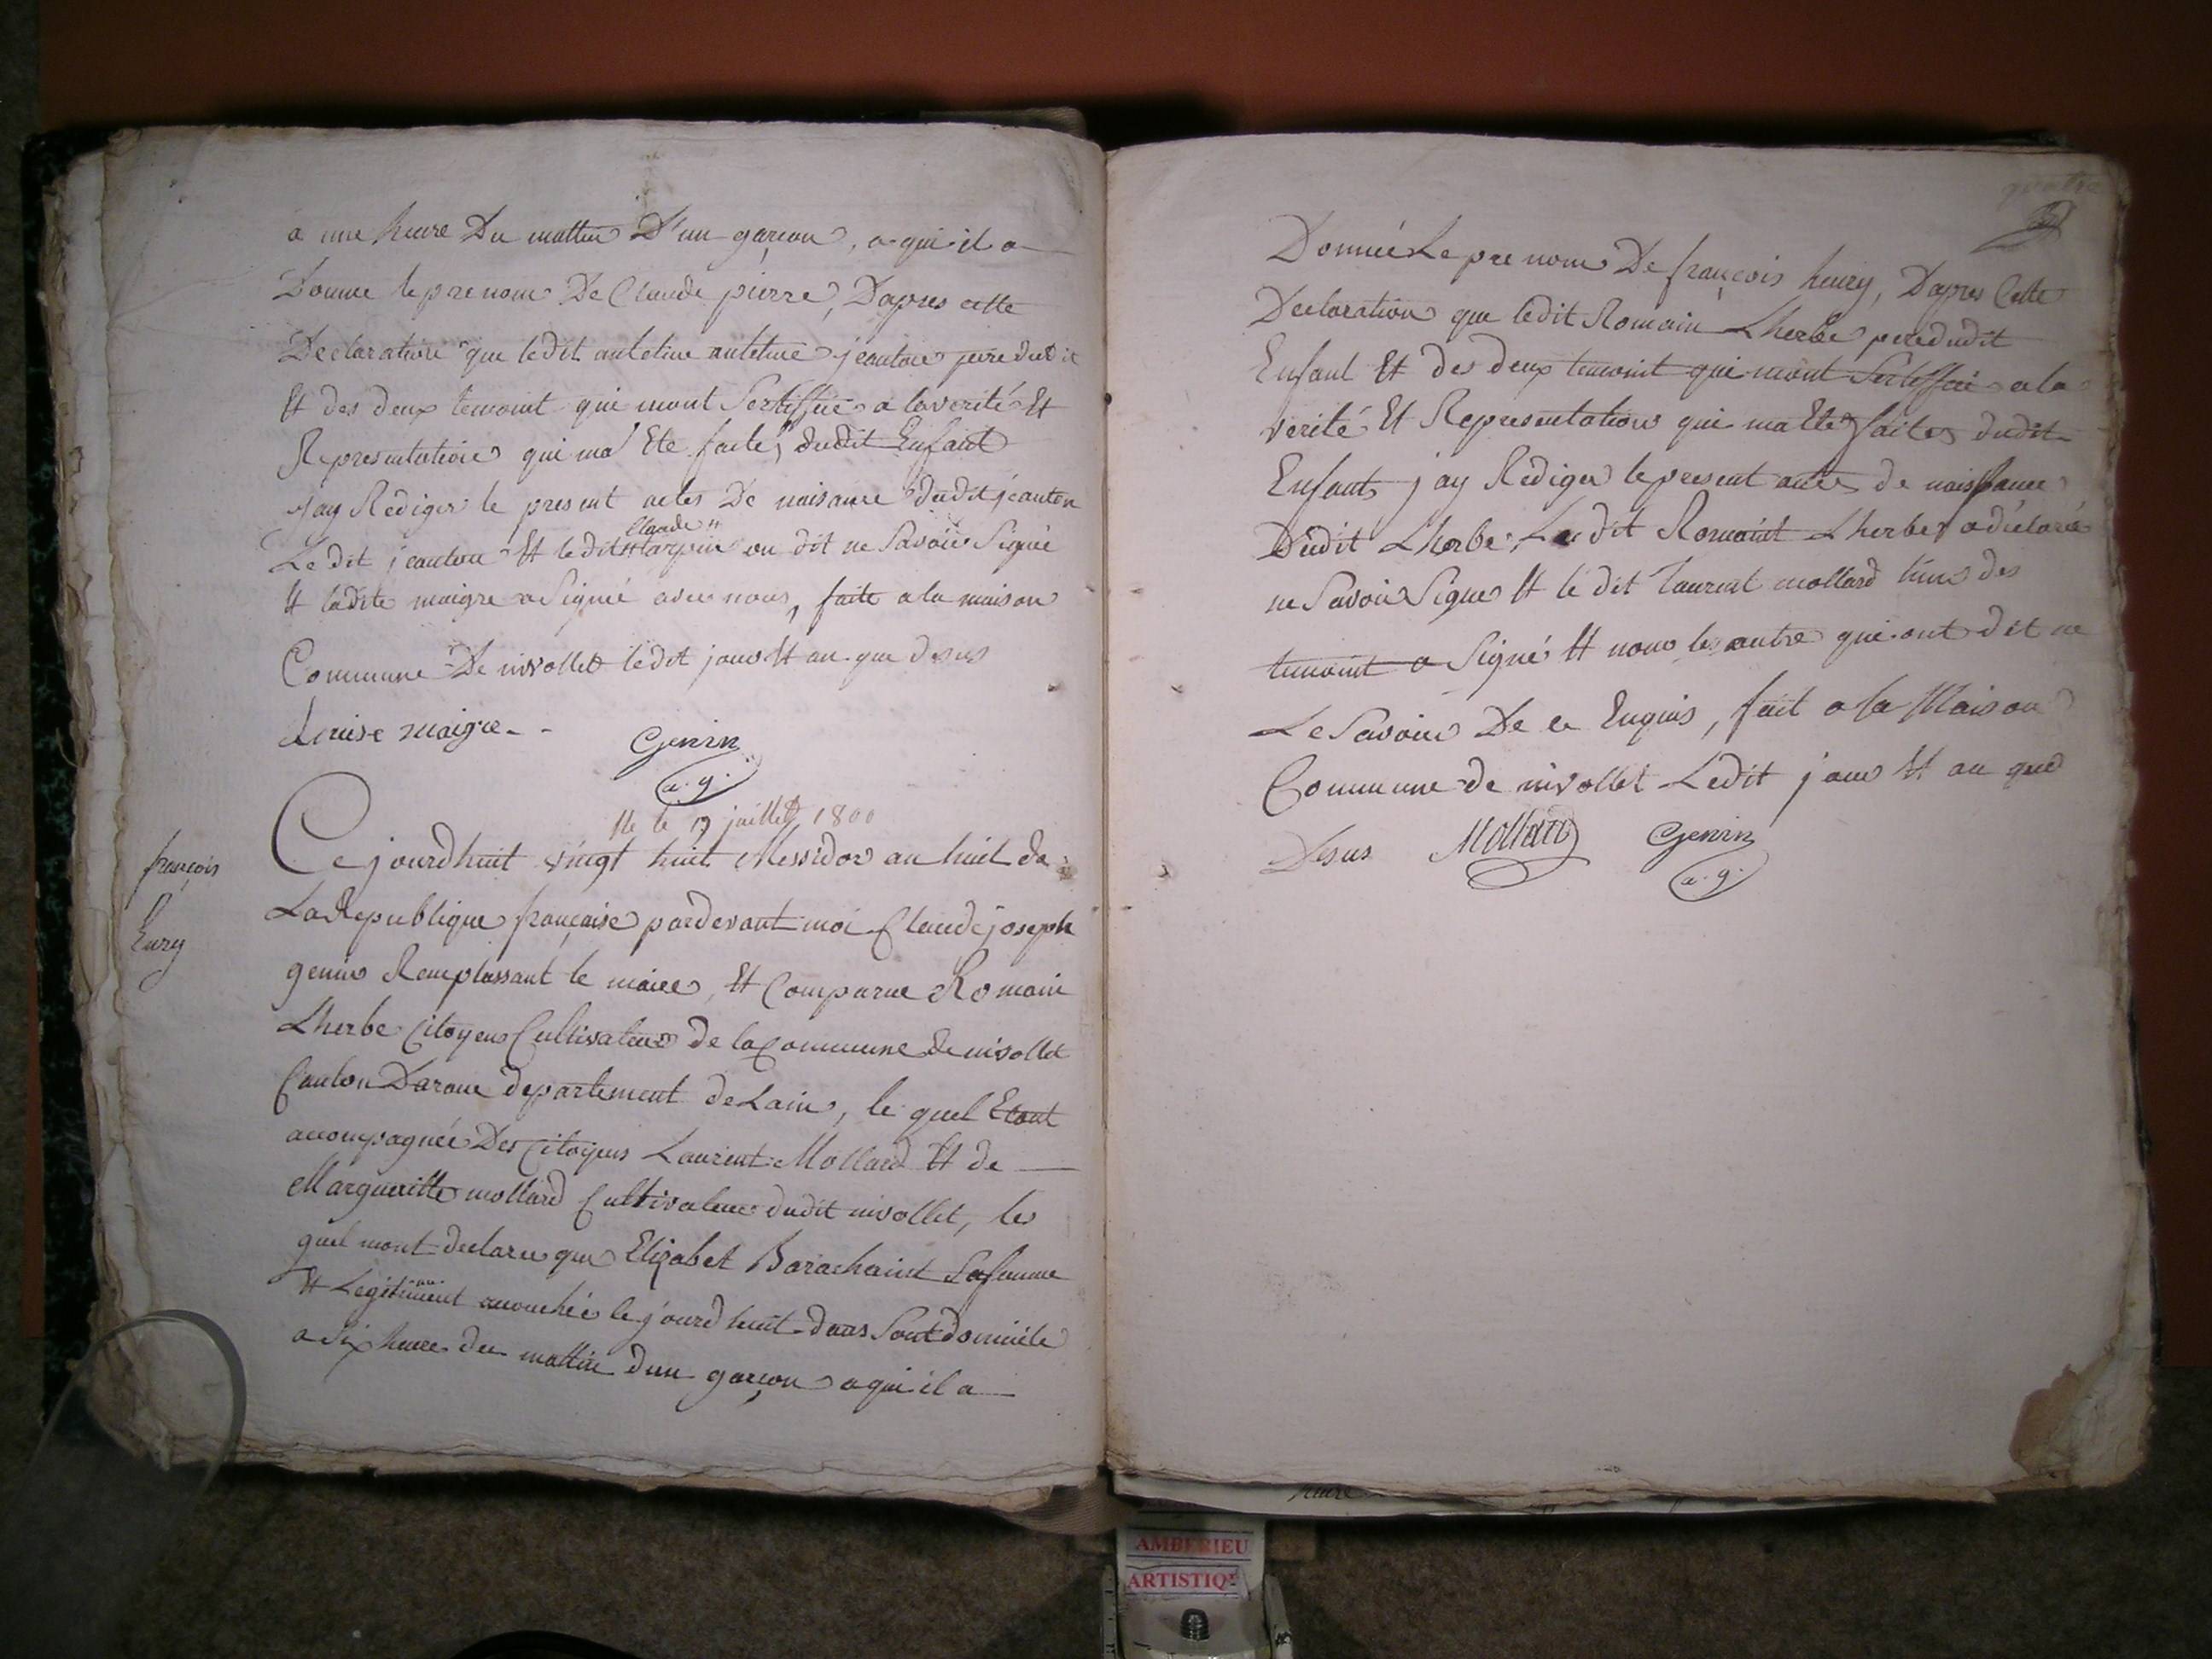 a une heure Du mattin D'un garçon, a qui il a
Donné le prenom De Claude pierre, Dapres cette
Declaration que ledit jeanton pere dudit
Et des deux temoint qui mont Sertiffiié a la verité Et
Representation qui ma Eté faites dudit Enfant
jay Rediger le present actes De naisance dudit jeanton
Claude
Le dit jeanton Et ledit tarpin on dit ne Savoir Signé
Et ladite maigre a Signié avec nous, faite a la maison
Commune De nivollet ledit jour Et an que desus
Louise maigre
Genin
a. g.
le 17 juillet 1800
françois
henry
Ce jourdhuit vingt huit Messidor an huit de
La Republique française pardevant moi Claude joseph
genin Remplassant le maire, Et Comparue Romain
Lherbe Citoyens Cultivateur de la Commune de nivollet
Canton Darane departement de Lain, le quel Etant
accompagnée Des Citoyens Laurent Mollard Et de
Margueritte mollard Cultivateur dudit nivollet, les
quel mont declaré que Elizabet Barachaint Safemme
Et Legitimement accouchée le jourdhuit dans Sont domicile
a Six heure du mattin dun garçon a qui il a
quatre
Donnée Le pre nom De françois henry, Dapres Cette
Declaration que ledit Romain Lherbe pere dudit
Enfant Et des deux temoint qui mont Sertiffiié a la
verité Et Representation qui ma Eté faites dudit
Enfant, jay Rediger le present actes de naissance
Dudit Lherbe, Ledit Romaint Lherbe a déclaré
ne Savoir Signe Et le dit Laurent mollard lun des
temoint a Signé Et nom les autre qui ont dit ne
Le Savoir De ce Enquis, fait a la Maison
Commune de nivollet Ledit jour Et an que
Desus Mollard Genin
a. g.
heure
AMBERIEU
ARTISTIQ